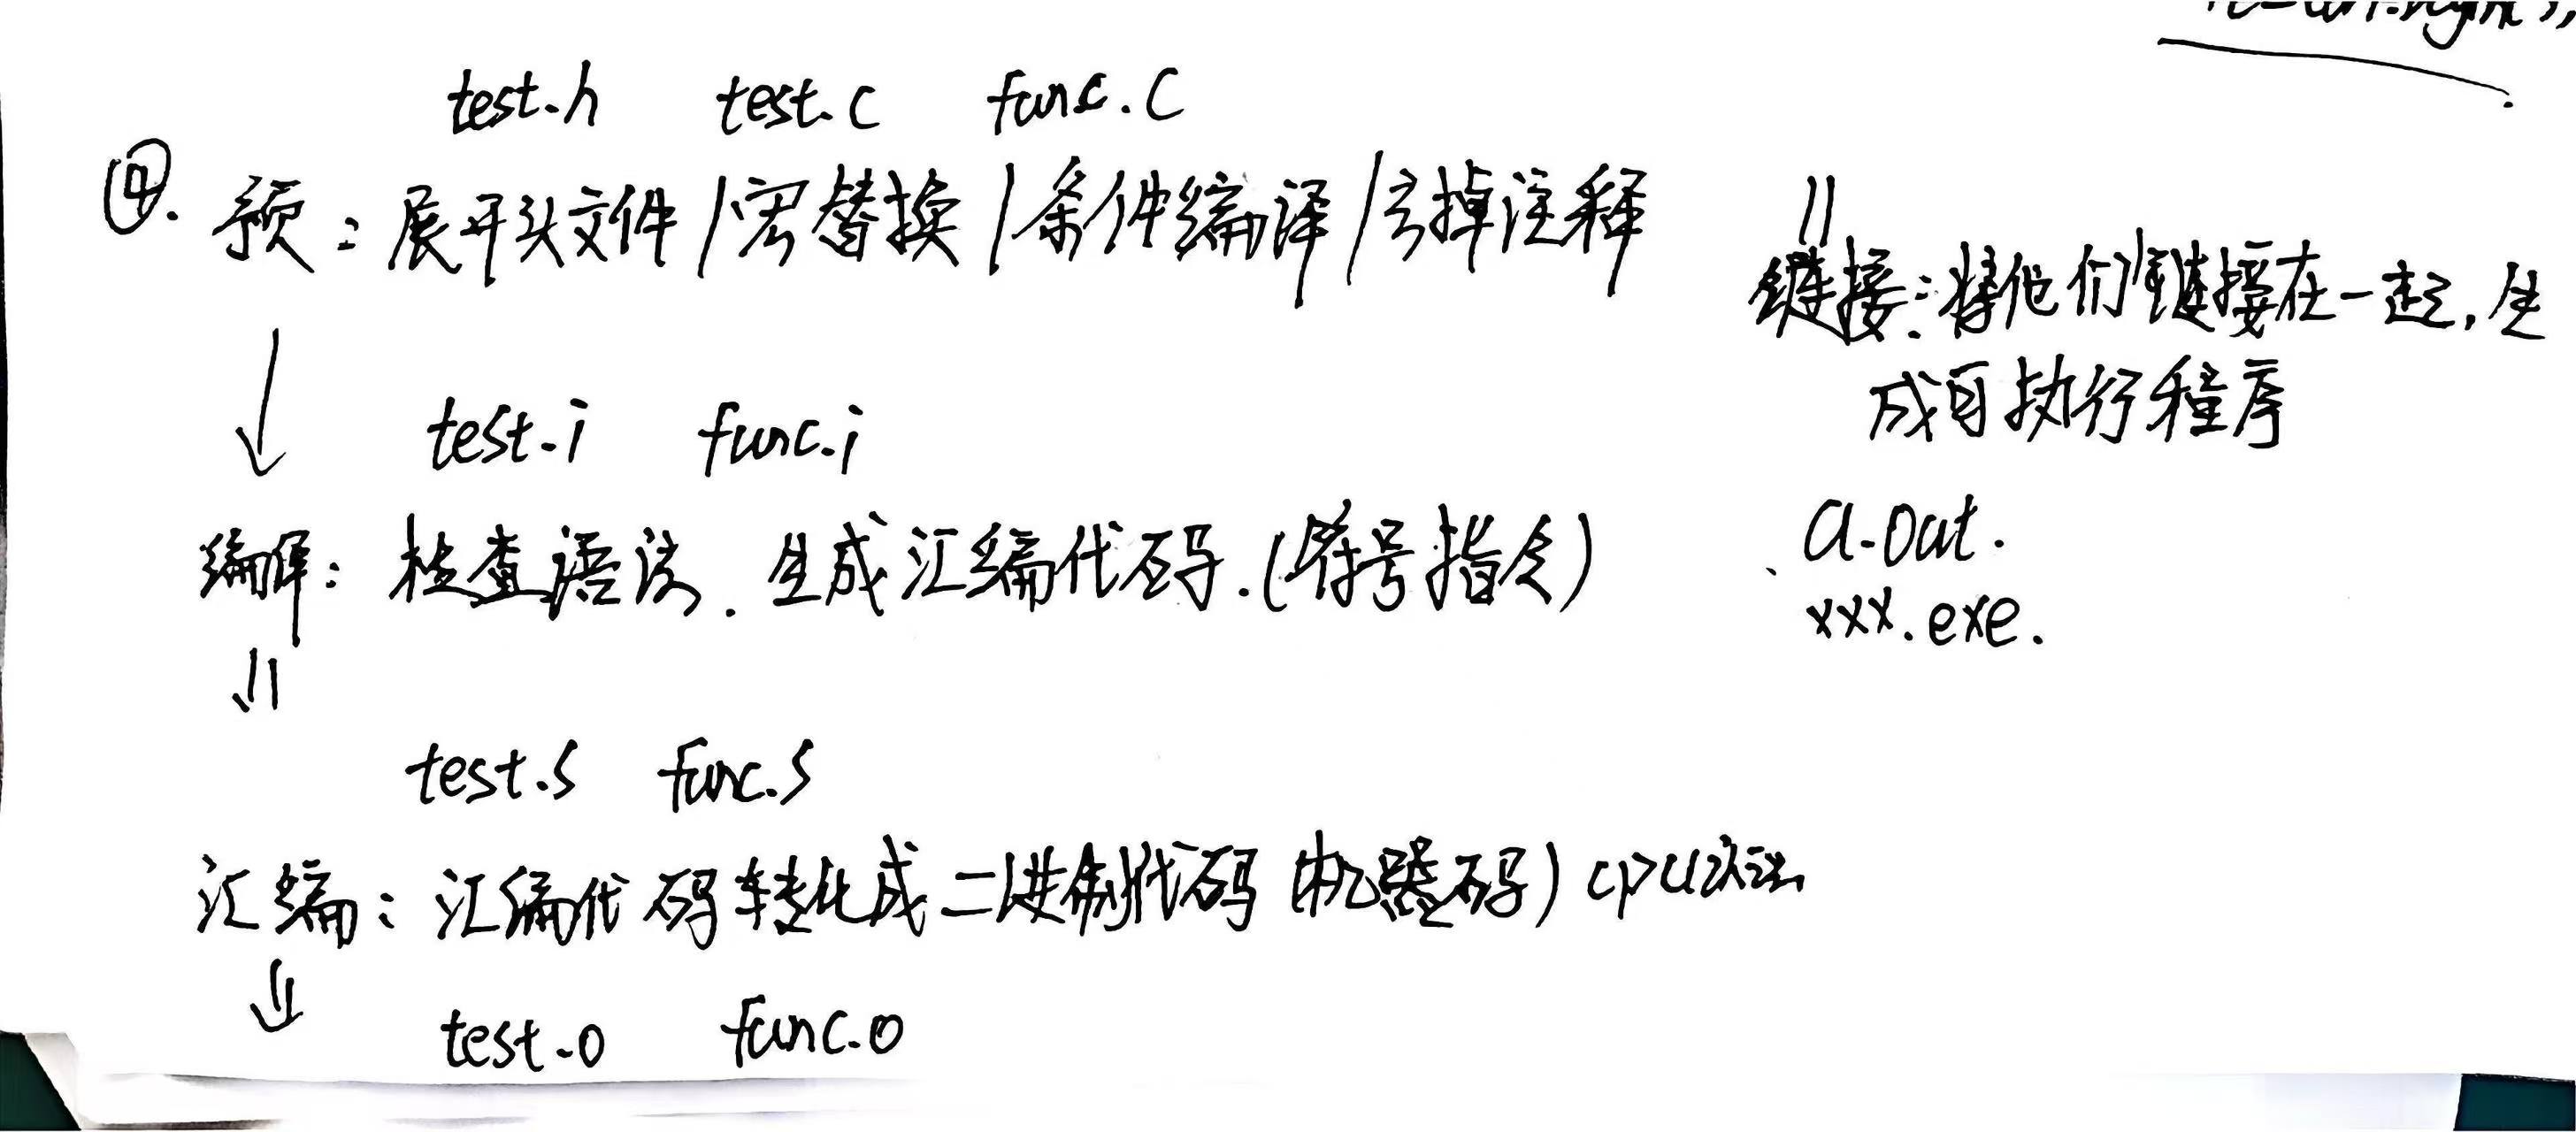 test.h test.c func.c
④. 预：展开头文件/宏替换/条件编译/去掉注释
↓
test.i func.i
编译：检查语法．生成汇编代码．(符号指令)
test.s func.s
汇编：汇编代码转化成二进制代码(机器码) cpu认识
⇓
test.o func.o
链接：将他们链接在一起，生
成可执行程序
a.out.
xxx.exe.